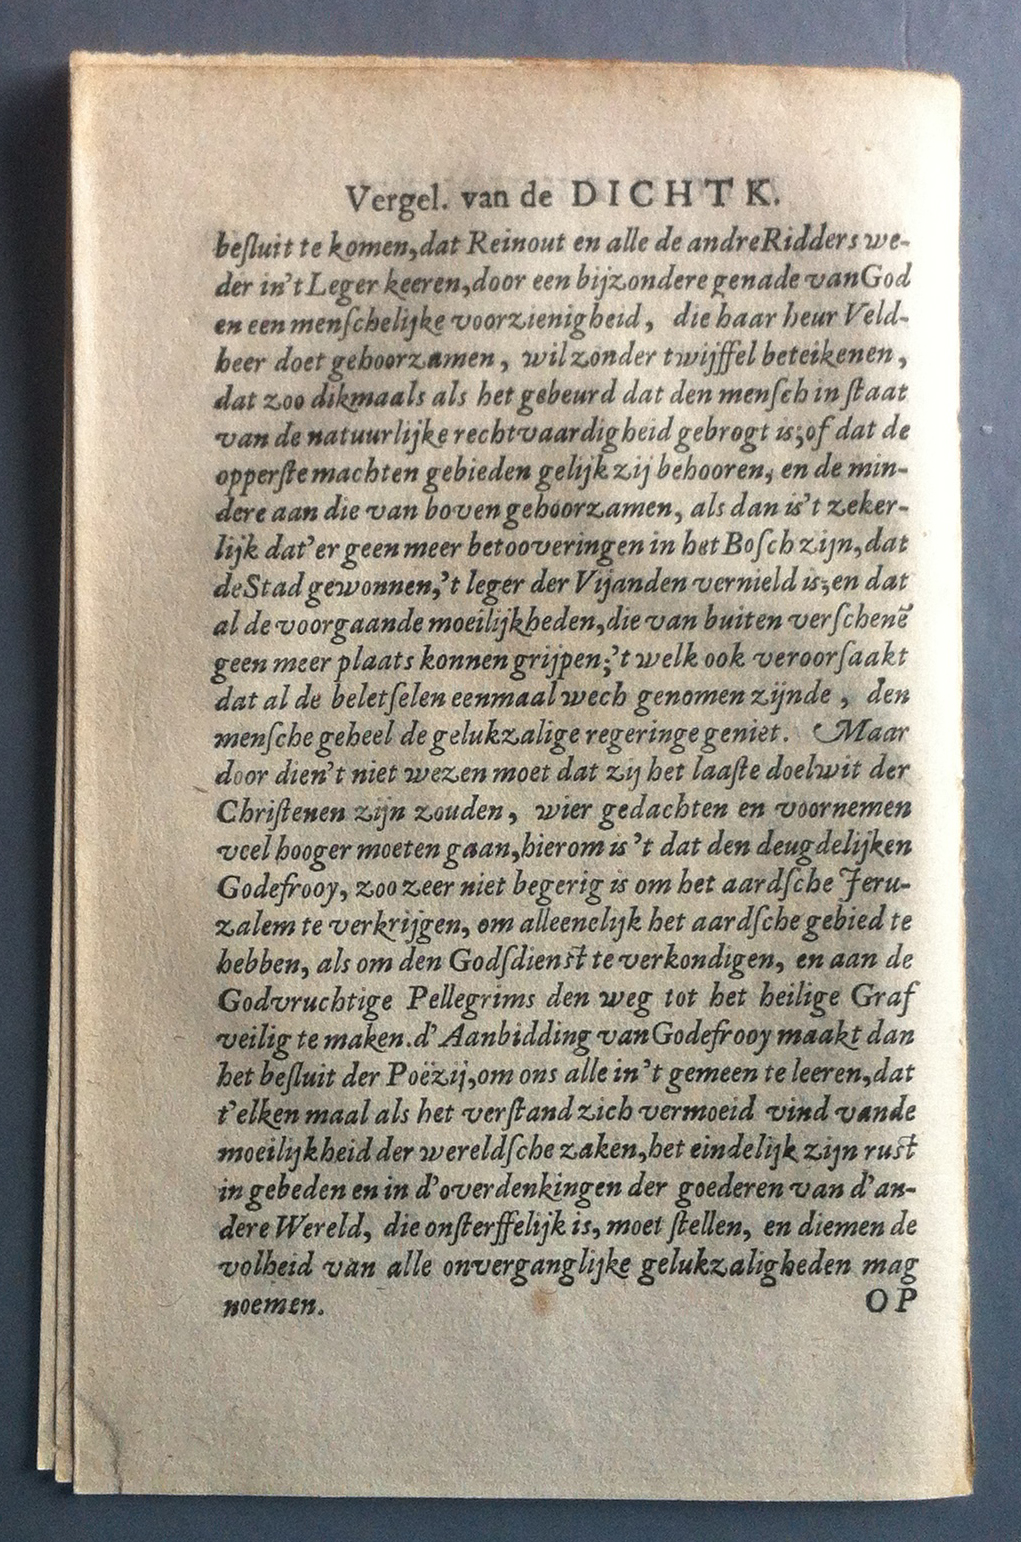 Vergel. van de DICHTK.
beſluit te komen, dat Reinout en alle de andre Ridders we-
der in't Leger keeren, door een bijzondere genade van God
en een menſchelijke voorzienigheid, die haar heur Veld-
heer doet gehoorzamen, wil zonder twijffel beteikenen,
dat zoo dikmaals als het gebeurd dat den menſch in ſtaat
van de natuurlijke rechtvaardigheid gebrogt is; of dat de
opperſte machten gebieden gelijk zij behooren, en de min-
dere aan die van boven gehoorzamen, als dan is't zeker-
lijk dat'er geen meer betooveringen in het Boſch zijn, dat
de Stad gewonnen, 't leger der Vijanden vernield is; en dat
al de voorgaande moeilijkheden, die van buiten verſchenē
geen meer plaats konnen grijpen; 't welk ook veroorſaakt
dat al de beletſelen eenmaal wech genomen zijnde, den
menſche geheel de gelukzalige regeringe geniet. Maar
door dien't niet wezen moet dat zij het laaſte doelwit der
Chriſtenen zijn zouden, wier gedachten en voornemen
veel hooger moeten gaan, hierom is't dat den deugdelijken
Godefrooy, zoo zeer niet begerig is om het aardſche Jeru-
zalem te verkrijgen, om alleenelijk het aardſche gebied te
hebben, als om den Godſdienſt te verkondigen, en aan de
Godvruchtige Pellegrims den weg tot het heilige Graf
veilig te maken. d'Aanbidding van Godefrooy maakt dan
het beſluit der Poëzij, om ons alle in't gemeen te leeren, dat
t'elken maal als het verſtand zich vermoeid vind vande
moeilijkheid der wereldſche zaken, het eindelijk zijn ruſt
in gebeden en in d'overdenkingen der goederen van d'an-
dere Wereld, die onſterffelijk is, moet ſtellen, en diemen de
volheid van alle onverganglijke gelukzaligheden mag
noemen. OP